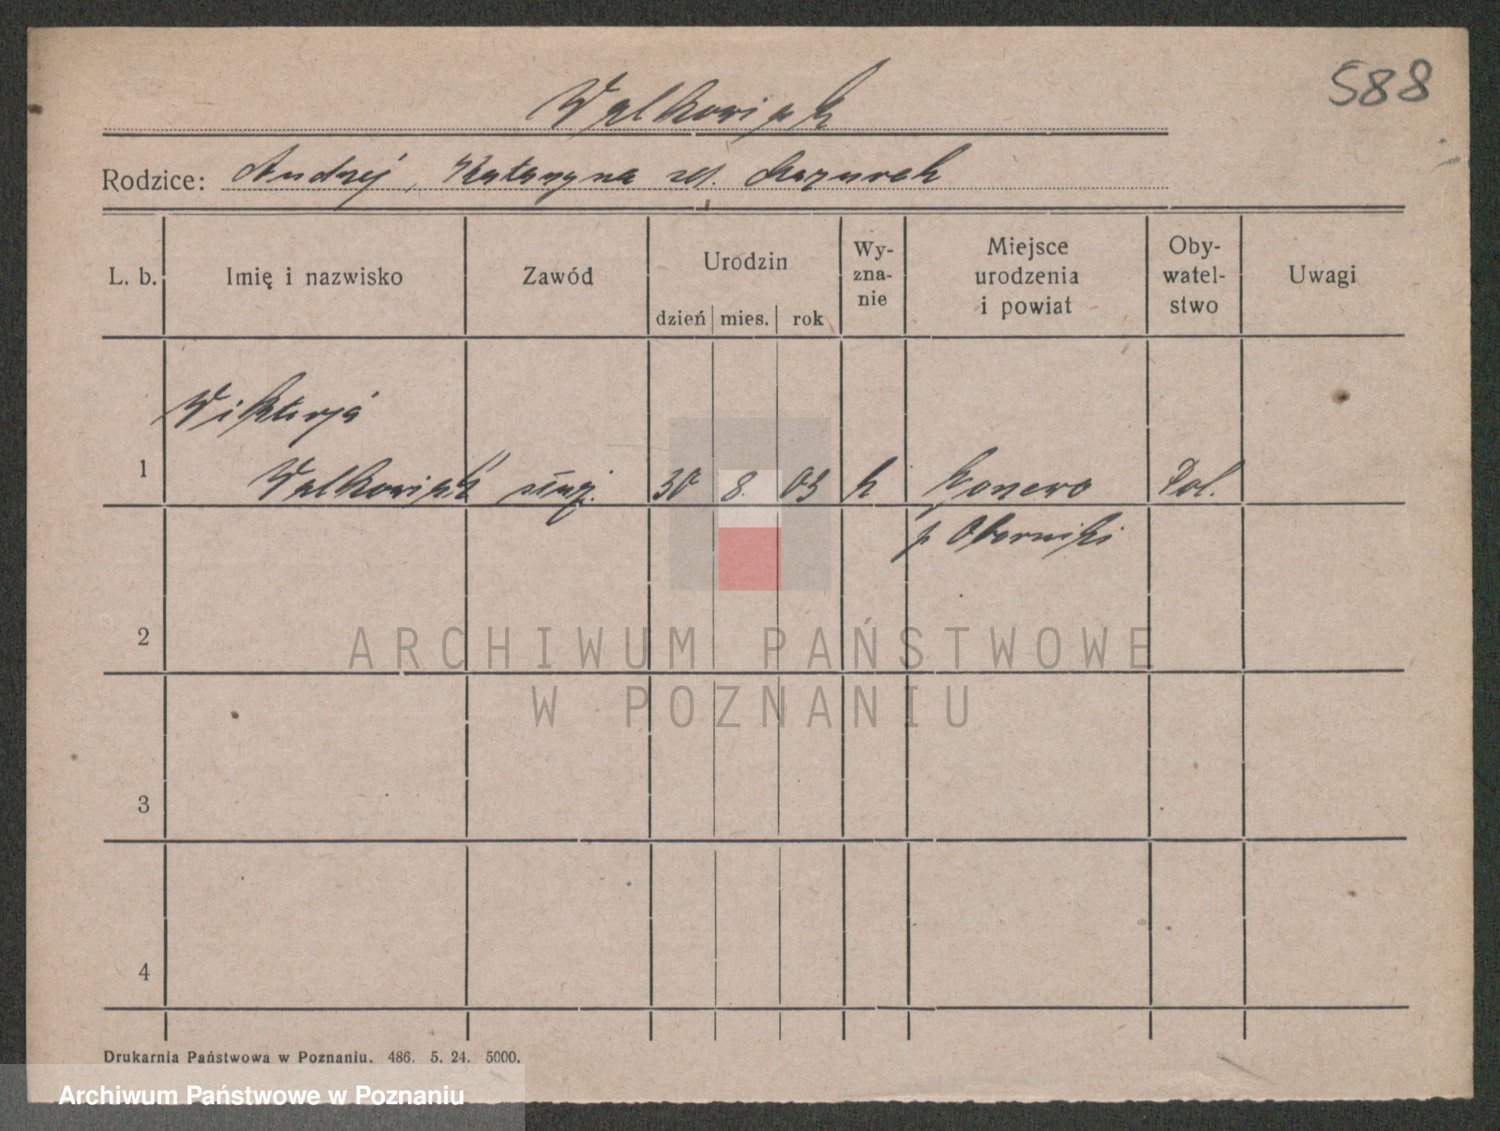 588
Walkowiak
Rodzice: Andrzej, Katarzyna zd. Mazurek
L. b. Imię i nazwisko Zawód Urodzin dzień mies. rok Wy-zna-nie Miejsce urodzenia i powiat Oby-watel-stwo Uwagi
Wiktorja
1 Walkowiak służ. 30 8. 03 k Pol.
p Oborniki
2
ARCHIWUM PAŃSTWOWE
W POZNANIU
3
4
Drukarnia Państwowa w Poznaniu. 486. 5. 24. 5000.
Archiwum Państwowe w Poznaniu